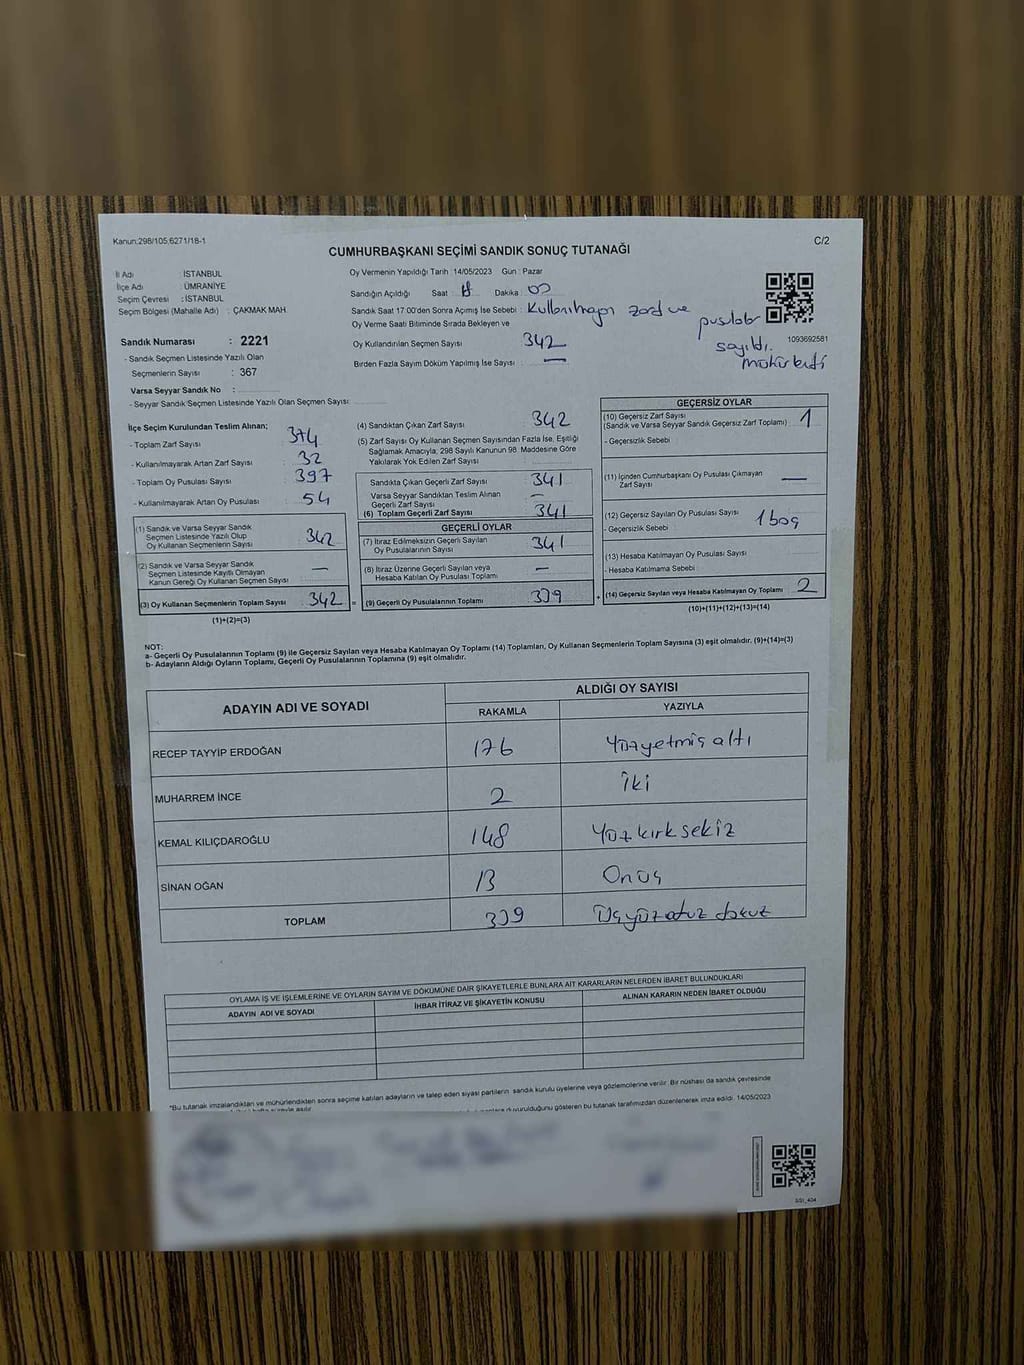 Kanun:298/105;6271/18-1
C/2
CUMHURBAŞKANI SEÇİMİ SANDIK SONUÇ TUTANAĞI
İl Adı : İSTANBUL
İlçe Adı : ÜMRANİYE
Seçim Çevresi : İSTANBUL
Seçim Bölgesi (Mahalle Adı) : ÇAKMAK MAH.
Sandık Numarası : 2221
- Sandık Seçmen Listesinde Yazılı Olan
Seçmenlerin Sayısı : 367
Varsa Seyyar Sandık No :
- Seyyar Sandık Seçmen Listesinde Yazılı Olan Seçmen Sayısı:
Oy Vermenin Yapıldığı Tarih : 14/05/2023 Gün : Pazar
Sandığın Açıldığı Saat : Dakika :
Sandık Saat 17.00'den Sonra Açılmış İse Sebebi : Kullanılmayan zarf ve pusulalar sayıldı. mühürlendi
Oy Verme Saati Bitiminde Sırada Bekleyen ve
Oy Kullandırılan Seçmen Sayısı : 342
Birden Fazla Sayım Döküm Yapılmış İse Sayısı : —
1093692581
İlçe Seçim Kurulundan Teslim Alınan;
- Toplam Zarf Sayısı : 374
- Kullanılmayarak Artan Zarf Sayısı : 32
- Toplam Oy Pusulası Sayısı : 397
- Kullanılmayarak Artan Oy Pusulası : 54
(1) Sandık ve Varsa Seyyar Sandık
Seçmen Listesinde Yazılı Olup
Oy Kullanan Seçmenlerin Sayısı : 342
(2) Sandık ve Varsa Seyyar Sandık
Seçmen Listesinde Kayıtlı Olmayan
Kanun Gereği Oy Kullanan Seçmen Sayısı : —
(3) Oy Kullanan Seçmenlerin Toplam Sayısı : 342 =
(1)+(2)=(3)
(4) Sandıktan Çıkan Zarf Sayısı : 342
(5) Zarf Sayısı Oy Kullanan Seçmen Sayısından Fazla İse, Eşitliği
Sağlamak Amacıyla; 298 Sayılı Kanunun 98. Maddesine Göre
Yakılarak Yok Edilen Zarf Sayısı :
Sandıkta Çıkan Geçerli Zarf Sayısı : 341
Varsa Seyyar Sandıktan Teslim Alınan
Geçerli Zarf Sayısı : —
(6) Toplam Geçerli Zarf Sayısı : 341
GEÇERLİ OYLAR
(7) İtiraz Edilmeksizin Geçerli Sayılan
Oy Pusulalarının Sayısı : 341
(8) İtiraz Üzerine Geçerli Sayılan veya
Hesaba Katılan Oy Pusulası Toplamı : —
(9) Geçerli Oy Pusulalarının Toplamı : 339 +
GEÇERSİZ OYLAR
(10) Geçersiz Zarf Sayısı : 1
(Sandık ve Varsa Seyyar Sandık Geçersiz Zarf Toplamı)
- Geçersizlik Sebebi :
(11) İçinden Cumhurbaşkanı Oy Pusulası Çıkmayan
Zarf Sayısı : —
(12) Geçersiz Sayılan Oy Pusulası Sayısı : 1 boş
- Geçersizlik Sebebi :
(13) Hesaba Katılmayan Oy Pusulası Sayısı :
- Hesaba Katılmama Sebebi :
(14) Geçersiz Sayılan veya Hesaba Katılmayan Oy Toplamı : 2
(10)+(11)+(12)+(13)=(14)
NOT:
a- Geçerli Oy Pusulalarının Toplamı (9) ile Geçersiz Sayılan veya Hesaba Katılmayan Oy Toplamı (14) Toplamları, Oy Kullanan Seçmenlerin Toplam Sayısına (3) eşit olmalıdır. (9)+(14)=(3)
b- Adayların Aldığı Oyların Toplamı, Geçerli Oy Pusulalarının Toplamına (9) eşit olmalıdır.
ADAYIN ADI VE SOYADI ALDIĞI OY SAYISI
RAKAMLA YAZIYLA
RECEP TAYYİP ERDOĞAN 176 Yüzyetmiş altı
MUHARREM İNCE 2 İki
KEMAL KILIÇDAROĞLU 148 Yüz kırk sekiz
SİNAN OĞAN 13 Onüç
TOPLAM 339 Üçyüz otuz dokuz
OYLAMA İŞ VE İŞLEMLERİNE VE OYLARIN SAYIM VE DÖKÜMÜNE DAİR ŞİKAYETLERLE BUNLARA AİT KARARLARIN NELERDEN İBARET BULUNDUKLARI
ADAYIN ADI VE SOYADI İHBAR İTİRAZ VE ŞİKAYETİN KONUSU ALINAN KARARIN NEDEN İBARET OLDUĞU
*Bu tutanak imzalandıktan ve mühürlendikten sonra seçime katılan adayların ve talep eden siyasi partilerin sandık kurulu üyelerine veya gözlemcilerine verilir. Bir nüshası da sandık çevresinde
duyurulduğunu gösteren bu tutanak tarafımızdan düzenlenerek imza edildi. 14/05/2023